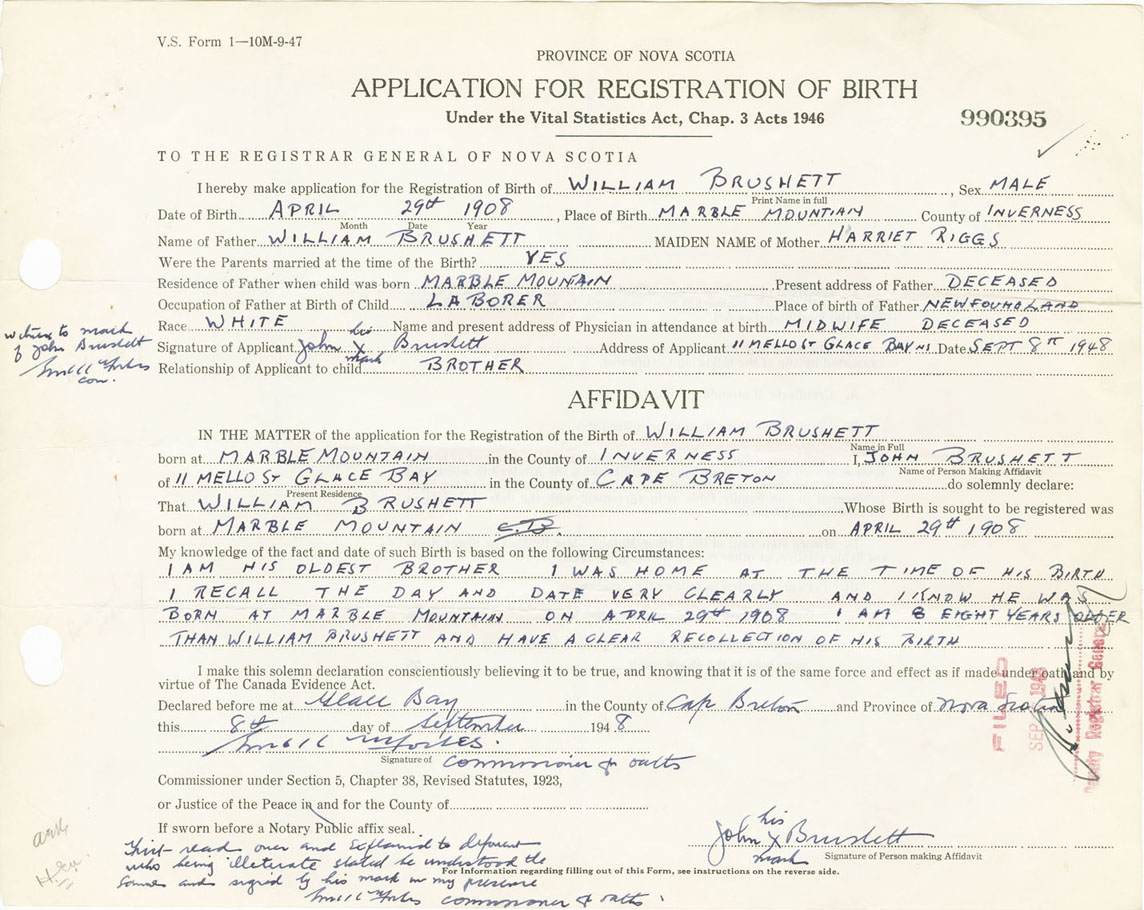 V.S. Form 1—10M-9-47
PROVINCE OF NOVA SCOTIA
APPLICATION FOR REGISTRATION OF BIRTH
Under the Vital Statistics Act, Chap. 3 Acts 1946
990395
TO THE REGISTRAR GENERAL OF NOVA SCOTIA
I hereby make application for the Registration of Birth of WILLIAM BRUSHETT, Sex MALE
Print Name in full
Date of Birth APRIL 29th 1908, Place of Birth MARBLE MOUNTIAN County of INVERNESS
Month Date Year
Name of Father WILLIAM BRUSHETT MAIDEN NAME of Mother HARRIET RIGGS
Were the Parents married at the time of the Birth? YES
Residence of Father when child was born MARBLE MOUNTAIN Present address of Father DECEASED
Occupation of Father at Birth of Child LABORER Place of birth of Father NEWFOUNDLAND
Race WHITE Name and present address of Physician in attendance at birth MIDWIFE DECEASED
witness to mark
of John Brushett
com.
his
Signature of Applicant John X Brushett Address of Applicant 11 MELLO ST GLACE BAY NS Date SEPT 8TH 1948
mark
Relationship of Applicant to child BROTHER
AFFIDAVIT
IN THE MATTER of the application for the Registration of the Birth of WILLIAM BRUSHETT
Name in Full
born at MARBLE MOUNTAIN in the County of INVERNESS I, JOHN BRUSHETT
Name of Person Making Affidavit
of 11 MELLO ST GLACE BAY in the County of CAPE BRETON do solemnly declare:
Present Residence
That WILLIAM BRUSHETT Whose Birth is sought to be registered was
born at MARBLE MOUNTAIN C.B. on APRIL 29th 1908
My knowledge of the fact and date of such Birth is based on the following Circumstances:
I AM HIS OLDEST BROTHER I WAS HOME AT THE TIME OF HIS BIRTH
I RECALL THE DAY AND DATE VERY CLEARLY AND I KNOW HE WAS
BORN AT MARBLE MOUNTAIN ON APRIL 29th 1908 I AM 8 EIGHT YEARS OLDER
THAN WILLIAM BRUSHETT AND HAVE A CLEAR RECOLLECTION OF HIS BIRTH
I make this solemn declaration conscientiously believing it to be true, and knowing that it is of the same force and effect as if made under oath and by
virtue of The Canada Evidence Act.
Declared before me at Glace Bay in the County of Cap Breton and Province of Nova Scotia
this 8th day of September 1948
Signature of commissioner of oaths
FILED
SEP 1948
Deputy Registrar General
Commissioner under Section 5, Chapter 38, Revised Statutes, 1923,
or Justice of the Peace in and for the County of
If sworn before a Notary Public affix seal.
his
John X Brushett
mark
Signature of Person making Affidavit
First read over and Explained to deponent
who being illeterate stated he understood the
same and signed by his mark in my presence
commissioner of oaths.
For Information regarding filling out of this Form, see instructions on the reverse side.